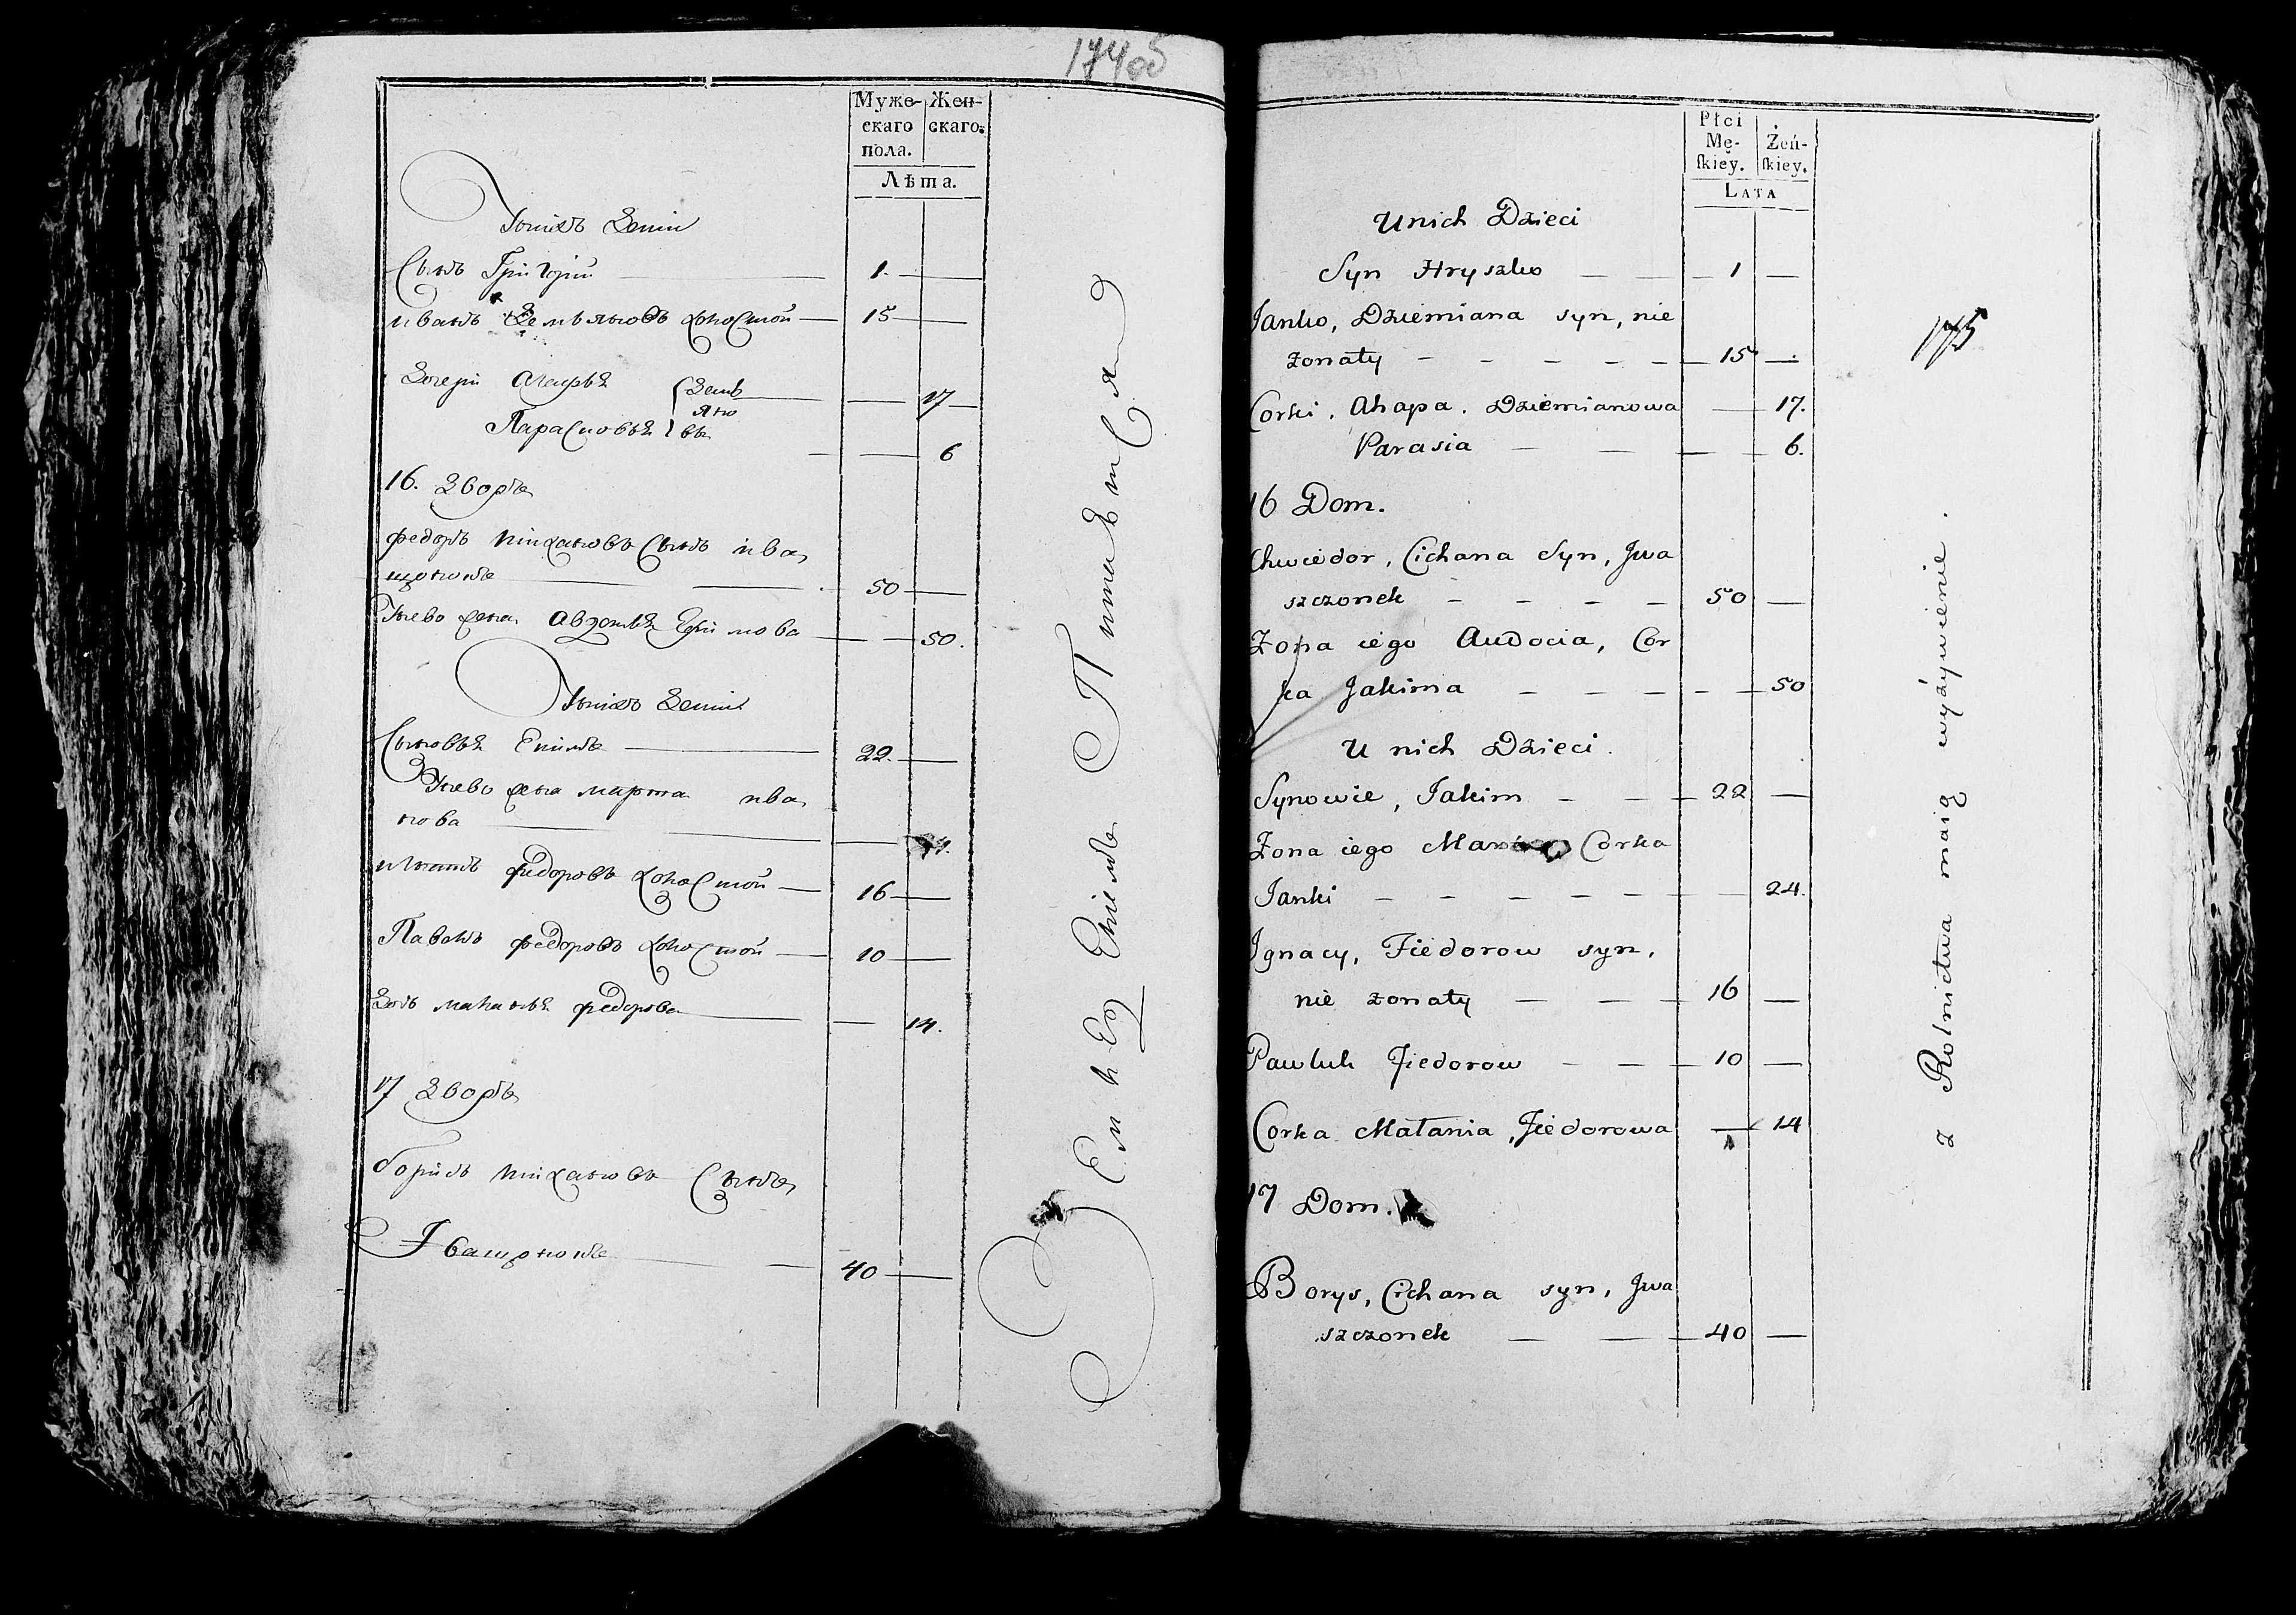 174об
Муже- Жен-
скаго скаго.
пола.
Лѣта.
Унихъ Дети
Сынъ Григорій 1.
иванъ Демьяновъ холостой 15
Дочери Агафья Демь 17
яно
Парасковья вы 6
16. Дворъ
Федоръ тихановъ Сынъ ива
щонокъ 50
Унево жена Авдотья Екимова 50.
Унихъ Дети
Сыновья Екимъ 22.
Унево жена марта ива
нова
игнатъ федоровъ холостой 16
Павелъ федоровъ холостой 10
Дочь маланья федорова 14.
17 Дворъ
борисъ тихановъ Сынъ
Іващонокъ 40
Питаетса
Płci
Mę- Żeń-
skiey. skiey.
LATA
U nich Dzieci
Syn Hryszko 1
Janko, Dziemiana syn, nie
żonaty 15
Corki. Ahapa. Dziemianowa 17.
Parasia 6.
16 Dom.
Chwiedor, Cichana Syn, Jwa
szczonek 50
Żona iego Audocia, Cor
ka Jakima 50
U nich Dzieci.
Synowie, Jakim 22
Żona iego Corka
Janki 24.
Ignacy, Fiedorow syn,
nie żonaty 16
Pawluk Fiedorow 10
Corka Małania, Fiedorowa 14
17 Dom.
Borys, Cichana syn, Jwa
szczonek 40
175
z Rolnictwa maią wyżywienie.